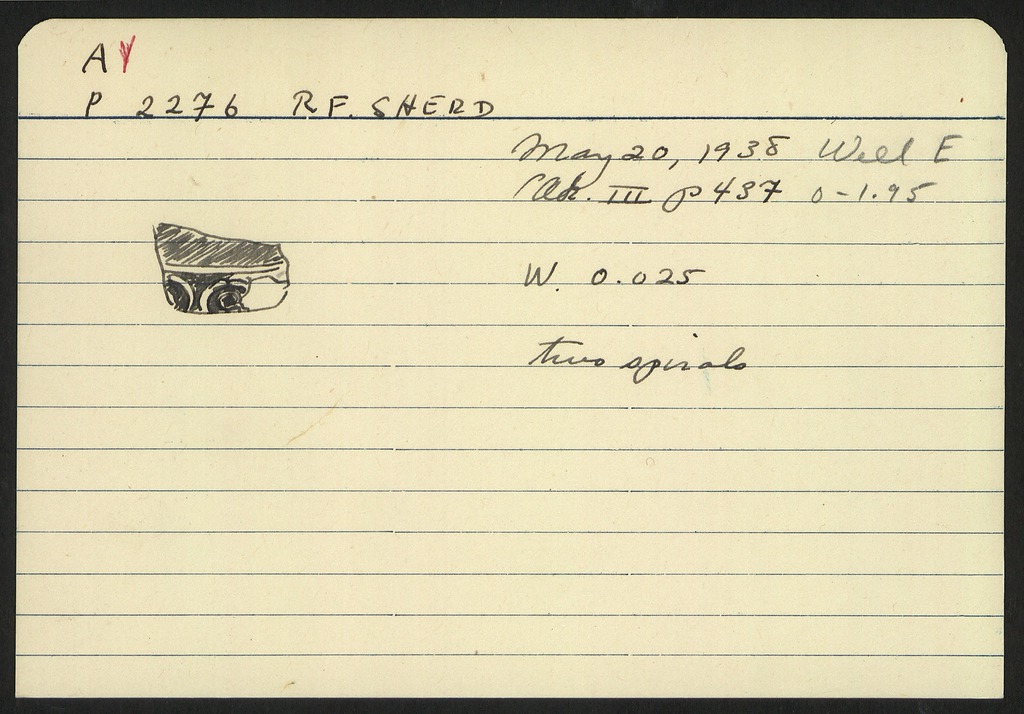 A
P 2276 RF. SHERD
May 20, 1938 Well E
III p 437 0-1.95
W. 0.025
two spirals